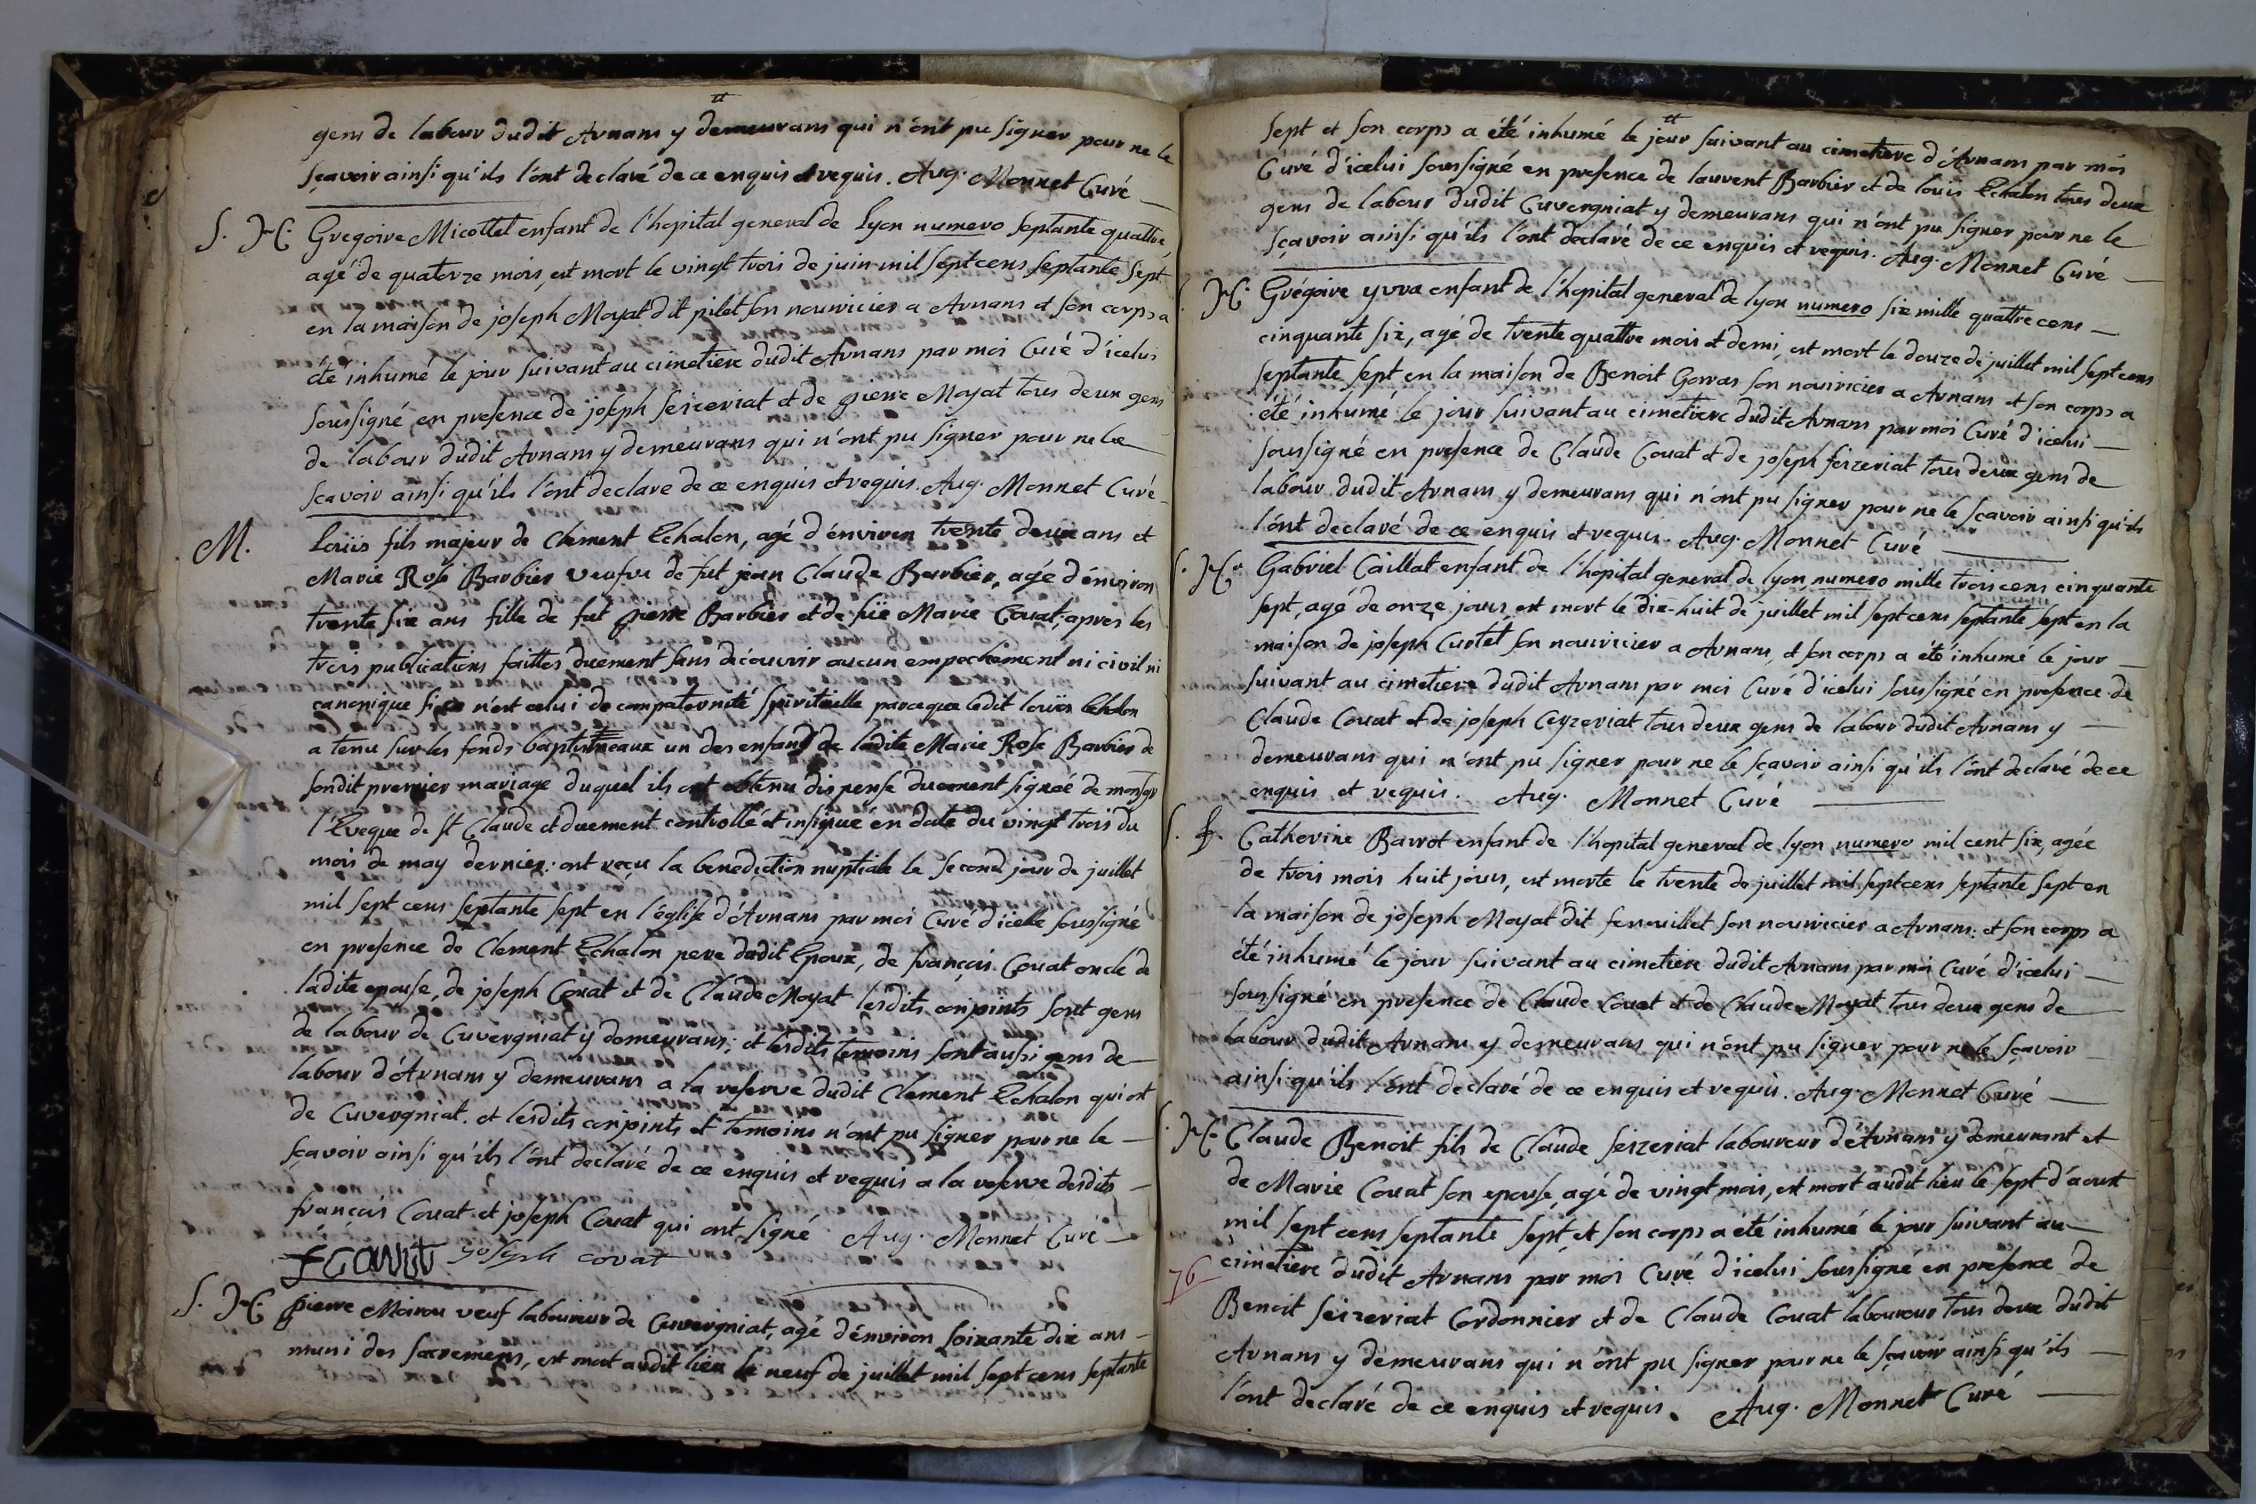 gens de labour dudit Arnans y demeurans qui n'ont pu signer pour ne le
sçavoir ainsi qu'ils l'ont declaré de ce enquis et requis. Aug. Monnet Curé
S. M. Gregoire Micottet enfant de l'hopital general de Lyon numero septante quattre
agé de quatorze mois, est mort le vingt trois de juin mil sept cens septante sept
en la maison de joseph Moyat dit pilet son nouricier a Arnans et son corps a
été inhumé le jour suivant au cimetiere dudit Arnans par moi Curé d'icelui
soussigné en presence de joseph seizeriat et de pierre Moyat tous deux gens
de labour dudit Arnans y demeurans qui n'ont pu signer pour ne le
sçavoir ainsi qu'ils l'ont declare de ce enquis et requis. Aug. Monnet Curé
M. Loüis fils majeur de Clement Echalon, agé d'énviron trente deux ans et
Marie Rose Barbier veufve de fut jean Claude Barbier, agé d'énviron
trente six ans fille de fut pierre Barbier et de füe Marie Couat; apres les
trois publications faittes duement sans découvrir aucun empechement ni civil ni
canonique si ce n'est celui de compaternité spirituelle parceque ledit loüis Echalon
a tenu sur les fonds baptismeaux un des enfans de ladite Marie Rose Barbier de
sondit premier mariage duquel ils ont obtenu dispense duement signée de monsgr
l'Eveque de St Claude et duement controllé et insinué en date du vingt trois du
mois de may dernier: ont reçu la benediction nuptiale le second jour de juillet
mil sept cens septante sept en l'église d'Arnans par moi Curé d'icelle soussigné
en presence de Clement Echalon pere dudit Epoux, de françois Couat oncle de
ladite epouse, de joseph Couat et de Claude Moyat lesdits conjoints sont gens
de labour de Cuvergniat y demeurans; et lesdits temoins sont aussi gens de
labour d'Arnans y demeurans a la reserve dudit Clement Echalon qui est
de Cuvergniat. et lesdits conjoints et temoins n'ont pu signer pour ne le
sçavoir ainsi qu'ils l'ont declaré de ce enquis et requis a la reserve desdits
françois Couat et joseph Couat qui ont signé Aug. Monnet Curé
joseph covat
S. M. pierre Moirou veuf laboureur de Cuvergniat, agé d'énviron soixante dix ans
muni des sacremens, est mort audit lieu le neuf de juillet mil sept cens septante
sept et son corps a été inhumé le jour suivant au cimetiere d'Arnans par moi
Curé d'icelui soussigné en presence de laurent Barbier et de louis Echalon tous deux
gens de labour dudit Cuvergniat y demeurans qui n'ont pu signer pour ne le
sçavoir ainsi qu'ils l'ont declaré de ce enquis et requis. Aug. Monnet Curé
M. Grégoire yvra enfant de l'hopital general de lyon numero six mille quattre cens
cinquante six, agé de trente quattre mois et demi, est mort le douze de juillet mil sept cens
septante sept en la maison de Benoit Gorras son nouricier a Arnans et son corps a
été inhumé le jour suivant au cimetiere dudit Arnans par moi Curé d'icelui
soussigné en presence de Claude Couat et de joseph seizeriat tous deux gens de
labour dudit Arnans y demeurans qui n'ont pu signer pour ne le sçavoir ainsi qu'ils
l'ont declaré de ce enquis et requis. Aug. Monnet Curé
S. M. Gabriel Caillat enfant de l'hopital general de lyon numero mille trois cens cinquante
sept, agé de onze jours, est mort le dix-huit de juillet mil sept cens septante sept en la
maison de joseph Curtet son nouricier a Arnans, et son corps a été inhumé le jour
suivant au cimetiere dudit Arnans par moi Curé d'icelui soussigné en presence de
Claude Couat et de joseph Ceyzeriat tous deux gens de labour dudit Arnans y
demeurans qui n'ont pu signer pour ne le sçavoir ainsi qu'ils l'ont declaré de ce
enquis et requis. Aug. Monnet Curé
S. f. Catherine Barrot enfant de l'hopital general de lyon numero mil cent six, agée
de trois mois huit jours, est morte le trente de juillet mil sept cens septante sept en
la maison de joseph Moyat dit fenouillet son nouricier a Arnans: et son corps a
été inhumé le jour suivant au cimetiere dudit Arnans par moi Curé d'icelui
soussigné en presence de Claude Couat et de Claude Moyat tous deux gens de
labour dudit Arnans y demeurans qui n'ont pu signer pour ne le sçavoir
ainsi qu'ils l'ont declaré de ce enquis et requis. Aug. Monnet Curé
S. M. Claude Benoit fils de Claude seizeriat laboureur d'Arnans y demeurant et
de Marie Couat son epouse, agé de vingt mois, est mort audit lieu le sept d'aoust
mil sept cens septante sept et son corps a été inhumé le jour suivant au
cimetiere dudit Arnans par moi Curé d'icelui soussigné en presence de
76
Benoit seizeriat Cordonnier et de Claude Couat laboureur tous deux dudit
Arnans y demeurans qui n'ont pu signer pour ne le sçavoir ainsi qu'ils
l'ont declaré de ce enquis et requis. Aug. Monnet Curé